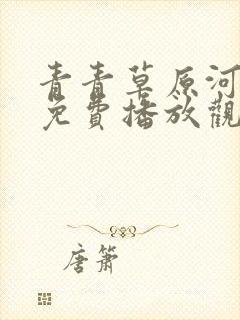 青青草原河
免費播放觀
唐簫